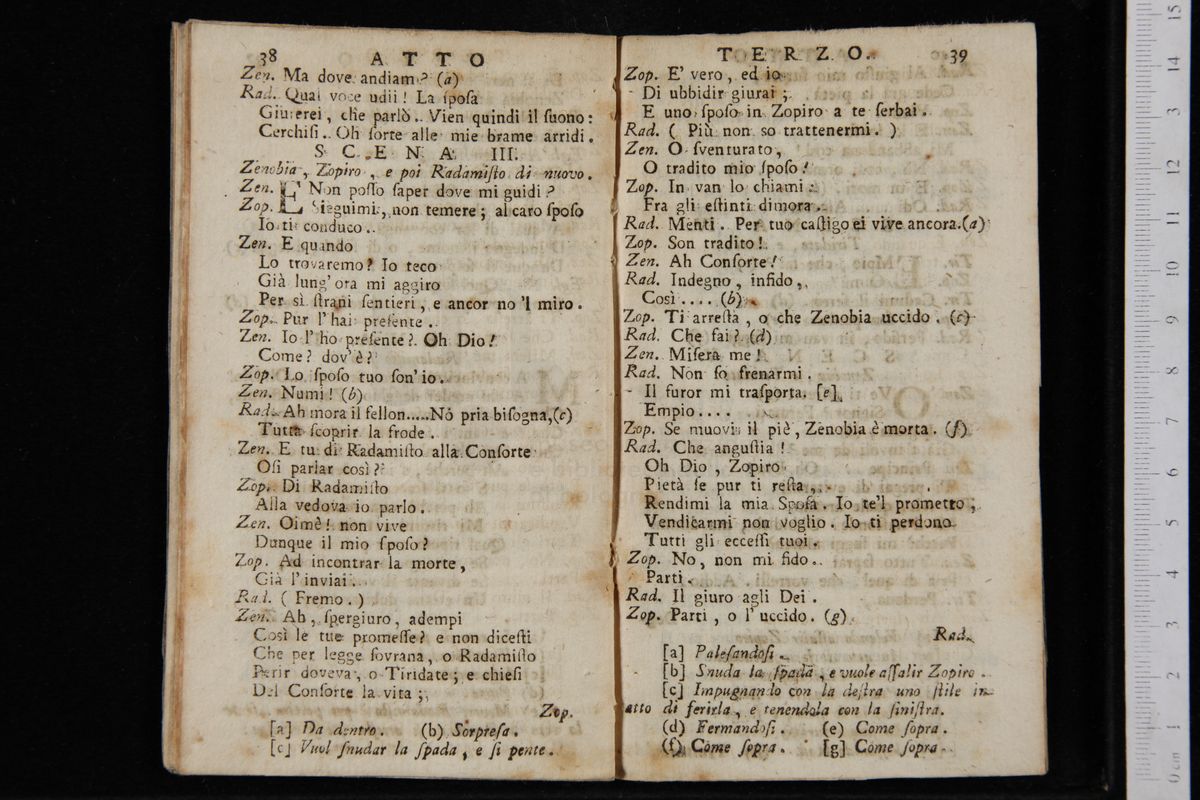 38 ATTO
Zen. Ma dove andiam? (a)
Rad. Quai voce udii! La ſpoſa
Giurerei, che parlò.. Vien quindi il ſuono:
Cerchiſi.. Oh ſorte alle mie brame arridi.
SCENA III.
Zenobia, Zopiro, e poi Radamiſto di nuovo.
Zen. E Non poſſo ſaper dove mi guidi?
Zop. Sieguimi, non temere; al caro ſpoſo
Io ti conduco..
Zen. E quando
Lo trovaremo? Io teco
Già lung' ora mi aggiro
Per sì ſtrani ſentieri, e ancor no 'l miro.
Zop. Pur l' hai preſente.
Zen. Io l' ho preſente?. Oh Dio!
Come? dov' è?
Zop. Lo ſpoſo tuo ſon' io.
Zen. Numi! (b)
Rad. Ah mora il fellon.....Nò pria biſogna,(c)
Tutta ſcoprir la frode.
Zen. E tu di Radamiſto alla Conſorte
Oſi parlar così?
Zop. Di Radamiſto
Alla vedova io parlo.
Zen. Oimè! non vive
Dunque il mio ſpoſo?
Zop. Ad incontrar la morte,
Già l' inviai.
Rad. ( Fremo. )
Zen. Ah, ſpergiuro, adempi
Così le tue promeſſe? e non diceſti
Che per legge ſovrana, o Radamiſto
Perir doveva, o Tiridate; e chieſi
Del Conſorte la vita;
Zop.
[a] Da dentro. (b) Sorpreſa.
[c] Vuol ſnudar la ſpada, e ſi pente.
TERZO. 39
Zop. E' vero, ed io
Di ubbidir giurai;
E uno ſpoſo in Zopiro a te ſerbai.
Rad. ( Più non so trattenermi. )
Zen. O ſventurato,
O tradito mio ſpoſo!
Zop. In van lo chiami:
Fra gli eſtinti dimora.
Rad. Menti. Per tuo caſtigo ei vive ancora.(a)
Zop. Son tradito!
Zen. Ah Conſorte!
Rad. Indegno, infido,
Così.... (b)
Zop. Ti arreſta, o che Zenobia uccido. (c)
Rad. Che fai? (d)
Zen. Miſera me!
Rad. Non ſo frenarmi.
Il furor mi traſporta. [e]
Empio....
Zop. Se muovi il piè, Zenobia è morta. (f)
Rad. Che anguſtia!
Oh Dio, Zopiro
Pietà ſe pur ti reſta,
Rendimi la mia Spoſa. Io te'l prometto,
Vendicarmi non voglio. Io ti perdono
Tutti gli ecceſſi tuoi.
Zop. No, non mi fido.
Parti.
Rad. Il giuro agli Dei.
Zop. Parti, o l' uccido. (g)
Rad.
[a] Paleſandoſi.
[b] Snuda la ſpada, e vuole aſſalir Zopiro.
[c] Impugnando con la deſtra uno ſtile in
atto di ferirla, e tenendola con la ſiniſtra.
(d) Fermandoſi. (e) Come ſopra.
(f) Come ſopra. [g] Come ſopra.
0 cm 1 2 3 4 5 6 7 8 9 10 11 12 13 14 15